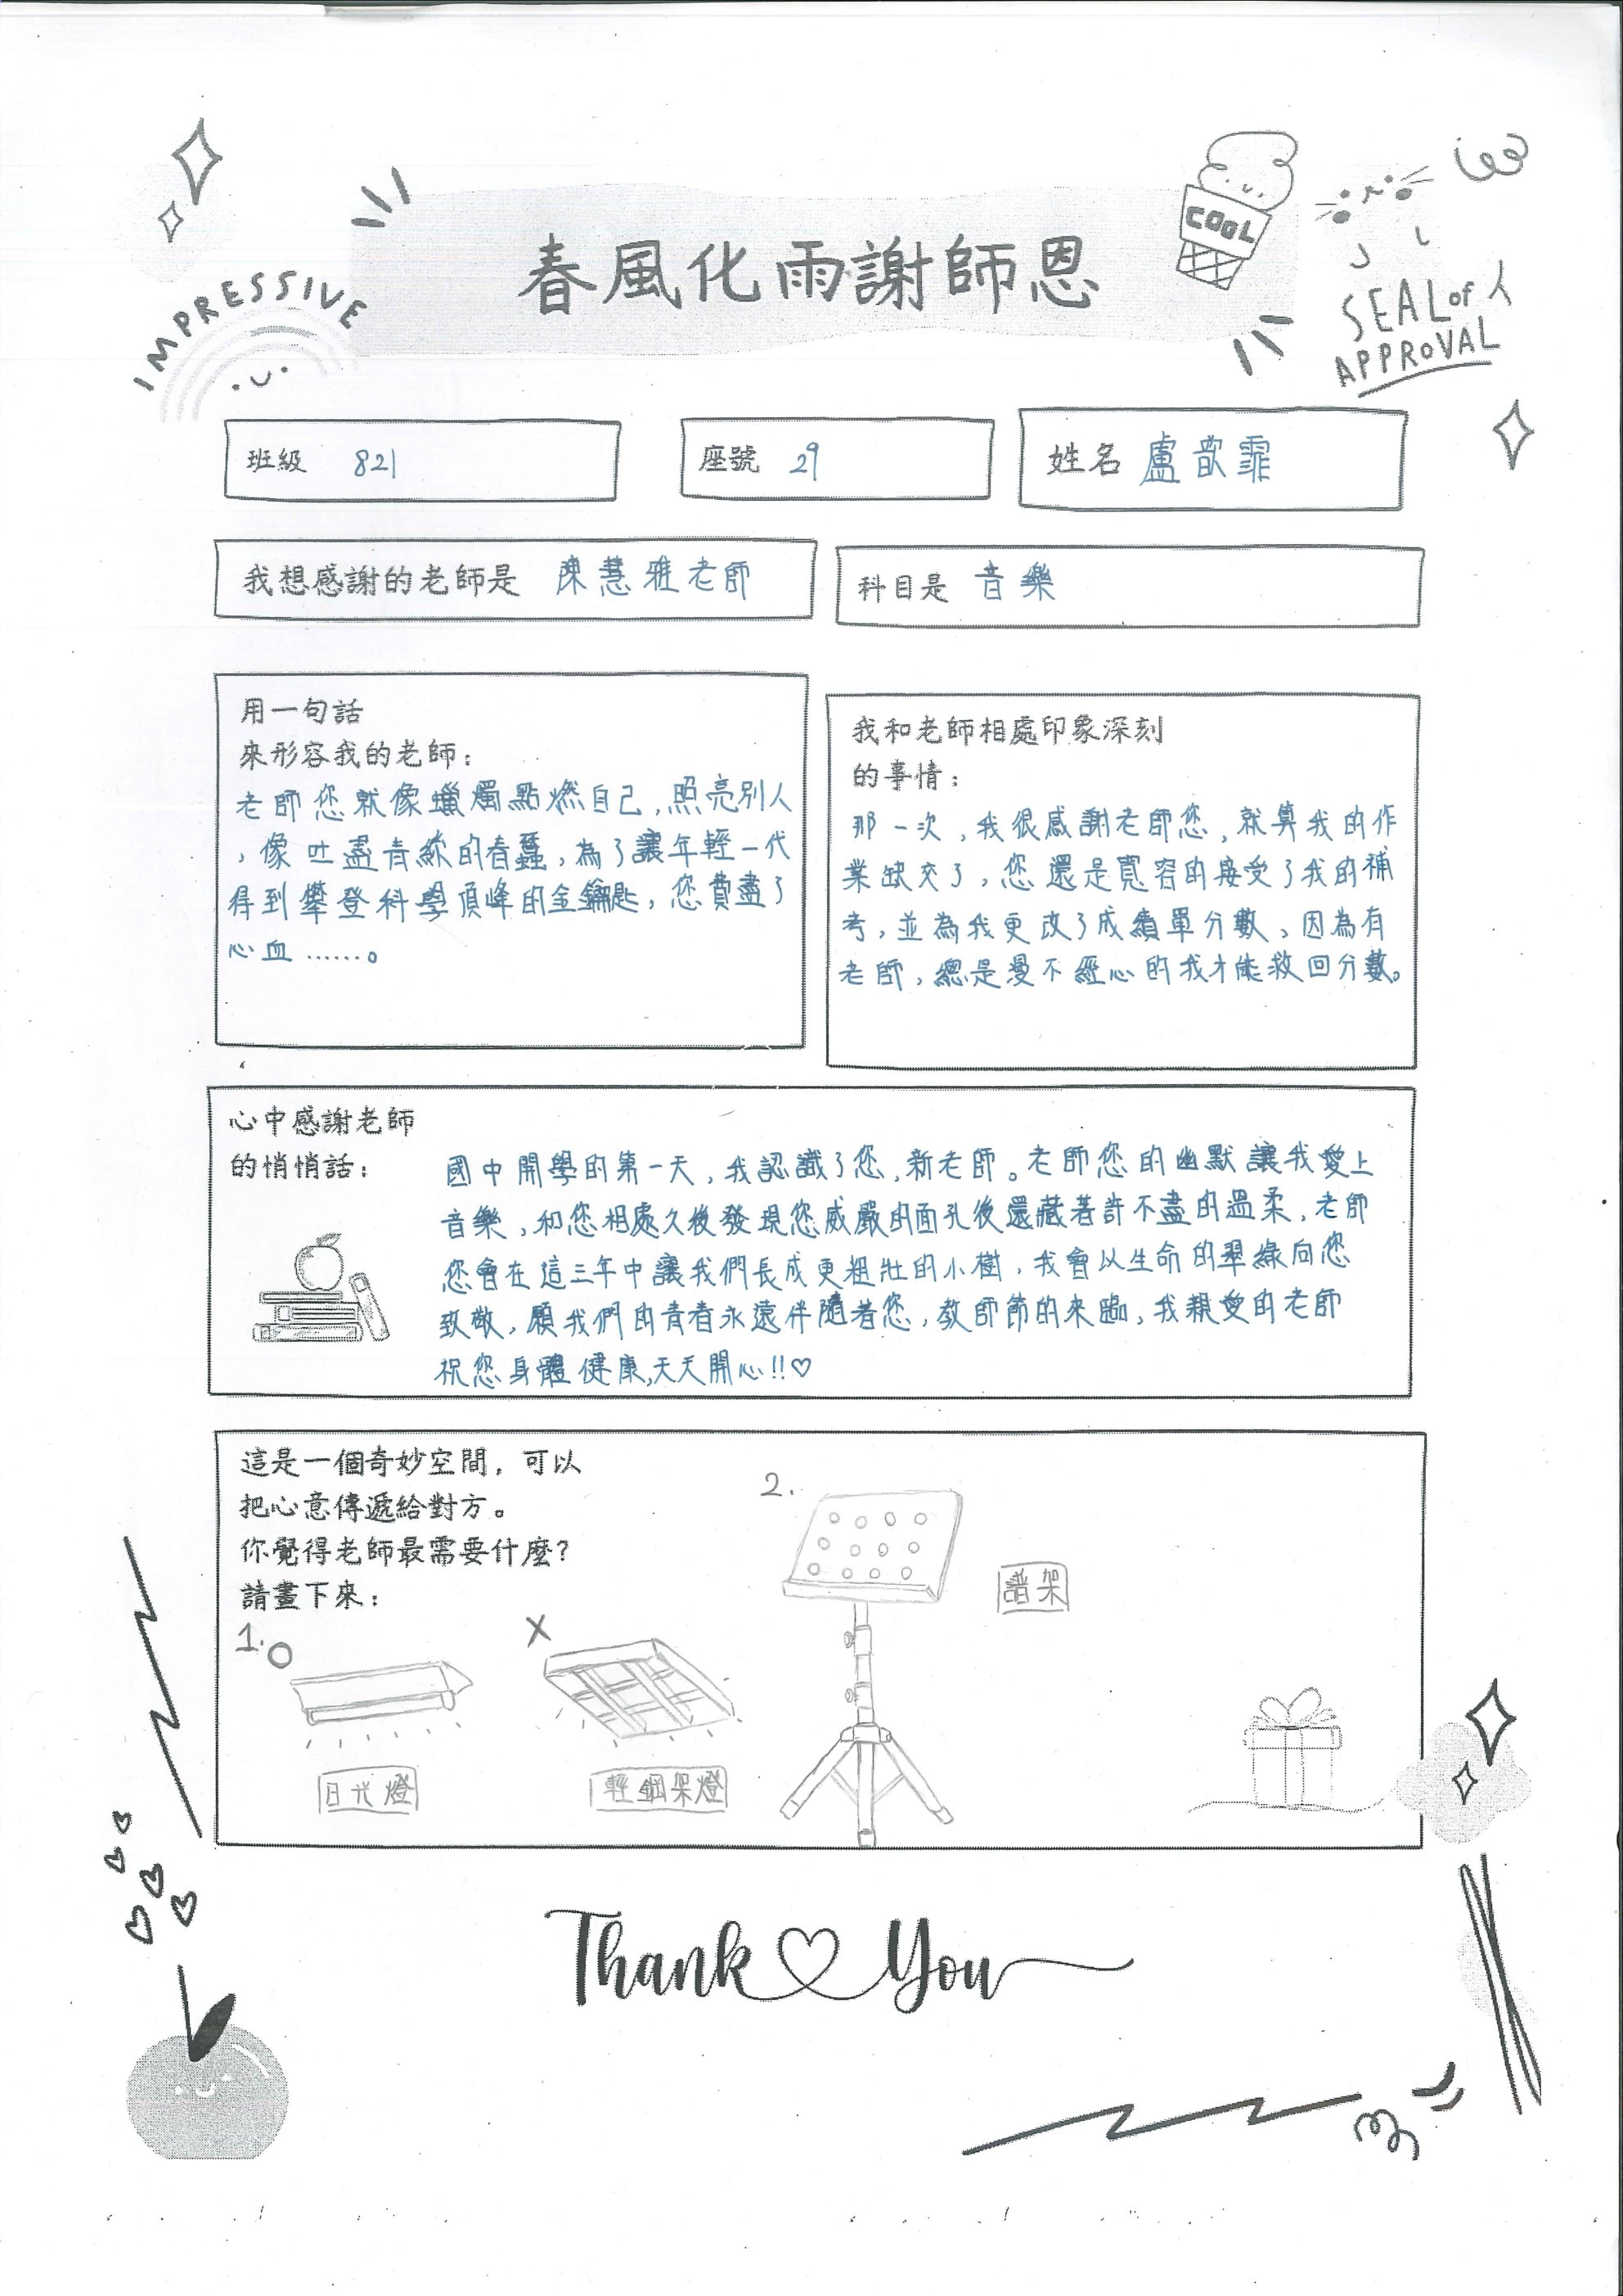 IMPRESSIVE
春風化雨謝師恩
COOL
SEAL of
APPROVAL
班級 821
座號 29
姓名 盧歆霏
我想感謝的老師是 陳慧雅老師
科目是 音樂
用一句話
來形容我的老師：
老師您就像蠟燭點燃自己，照亮別人
，像吐盡青絲的春蠶，為了讓年輕一代
得到攀登科學頂峰的金鑰匙，您費盡了
心血……。
我和老師相處印象深刻
的事情：
那一次，我很感謝老師您，就算我的作
業缺交了，您還是寬容的接受了我的補
考，並為我更改了成績單分數、因為有
老師，總是漫不經心的我才能救回分數。
心中感謝老師
的悄悄話：
國中開學的第一天，我認識了您，新老師。老師您的幽默讓我愛上
音樂，和您相處久後發現您威嚴的面孔後還藏著許不盡的溫柔，老師
您會在這三年中讓我們長成更粗壯的小樹，我會以生命的翠綠向您
致敬，願我們的青春永遠伴隨著您，教師節的來臨，我親愛的老師
祝您身體健康，天天開心!!♡
這是一個奇妙空間，可以
把心意傳遞給對方。
你覺得老師最需要什麼？
請畫下來：
1. O
X
2.
譜架
日光燈
輕鋼架燈
Thank You